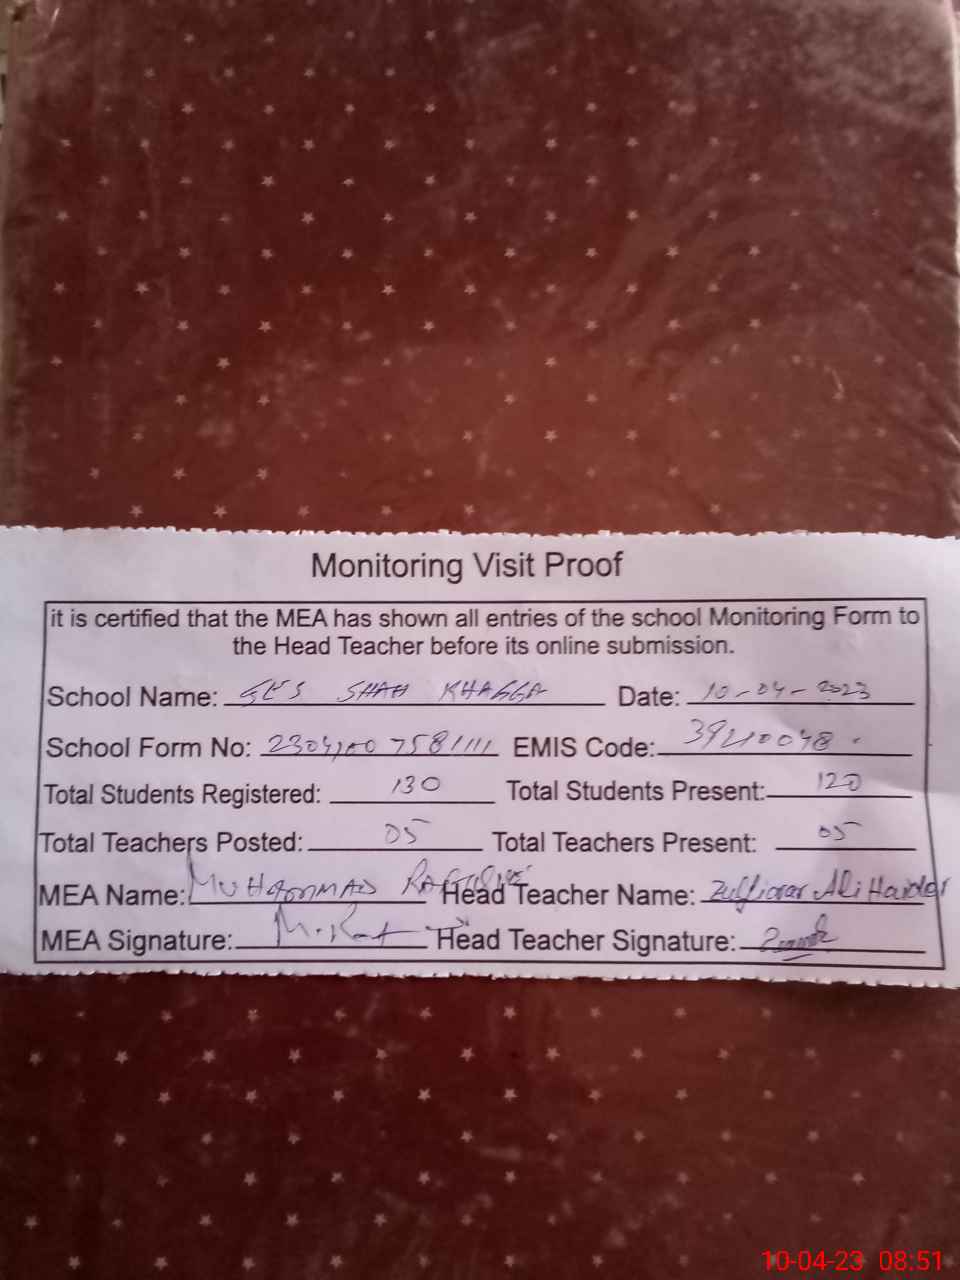 Monitoring Visit Proof
it is certified that the MEA has shown all entries of the school Monitoring Form to
the Head Teacher before its online submission.
School Name: GES SHAH KHAGGA Date: 10-04-2023
School Form No: EMIS Code: 39210048
Total Students Registered: 130 Total Students Present: 120
Total Teachers Posted: 05 Total Teachers Present: 05
MEA Name: MUHAMMAD Head Teacher Name: Ali Haider
MEA Signature: Head Teacher Signature:
10-04-23 08:51